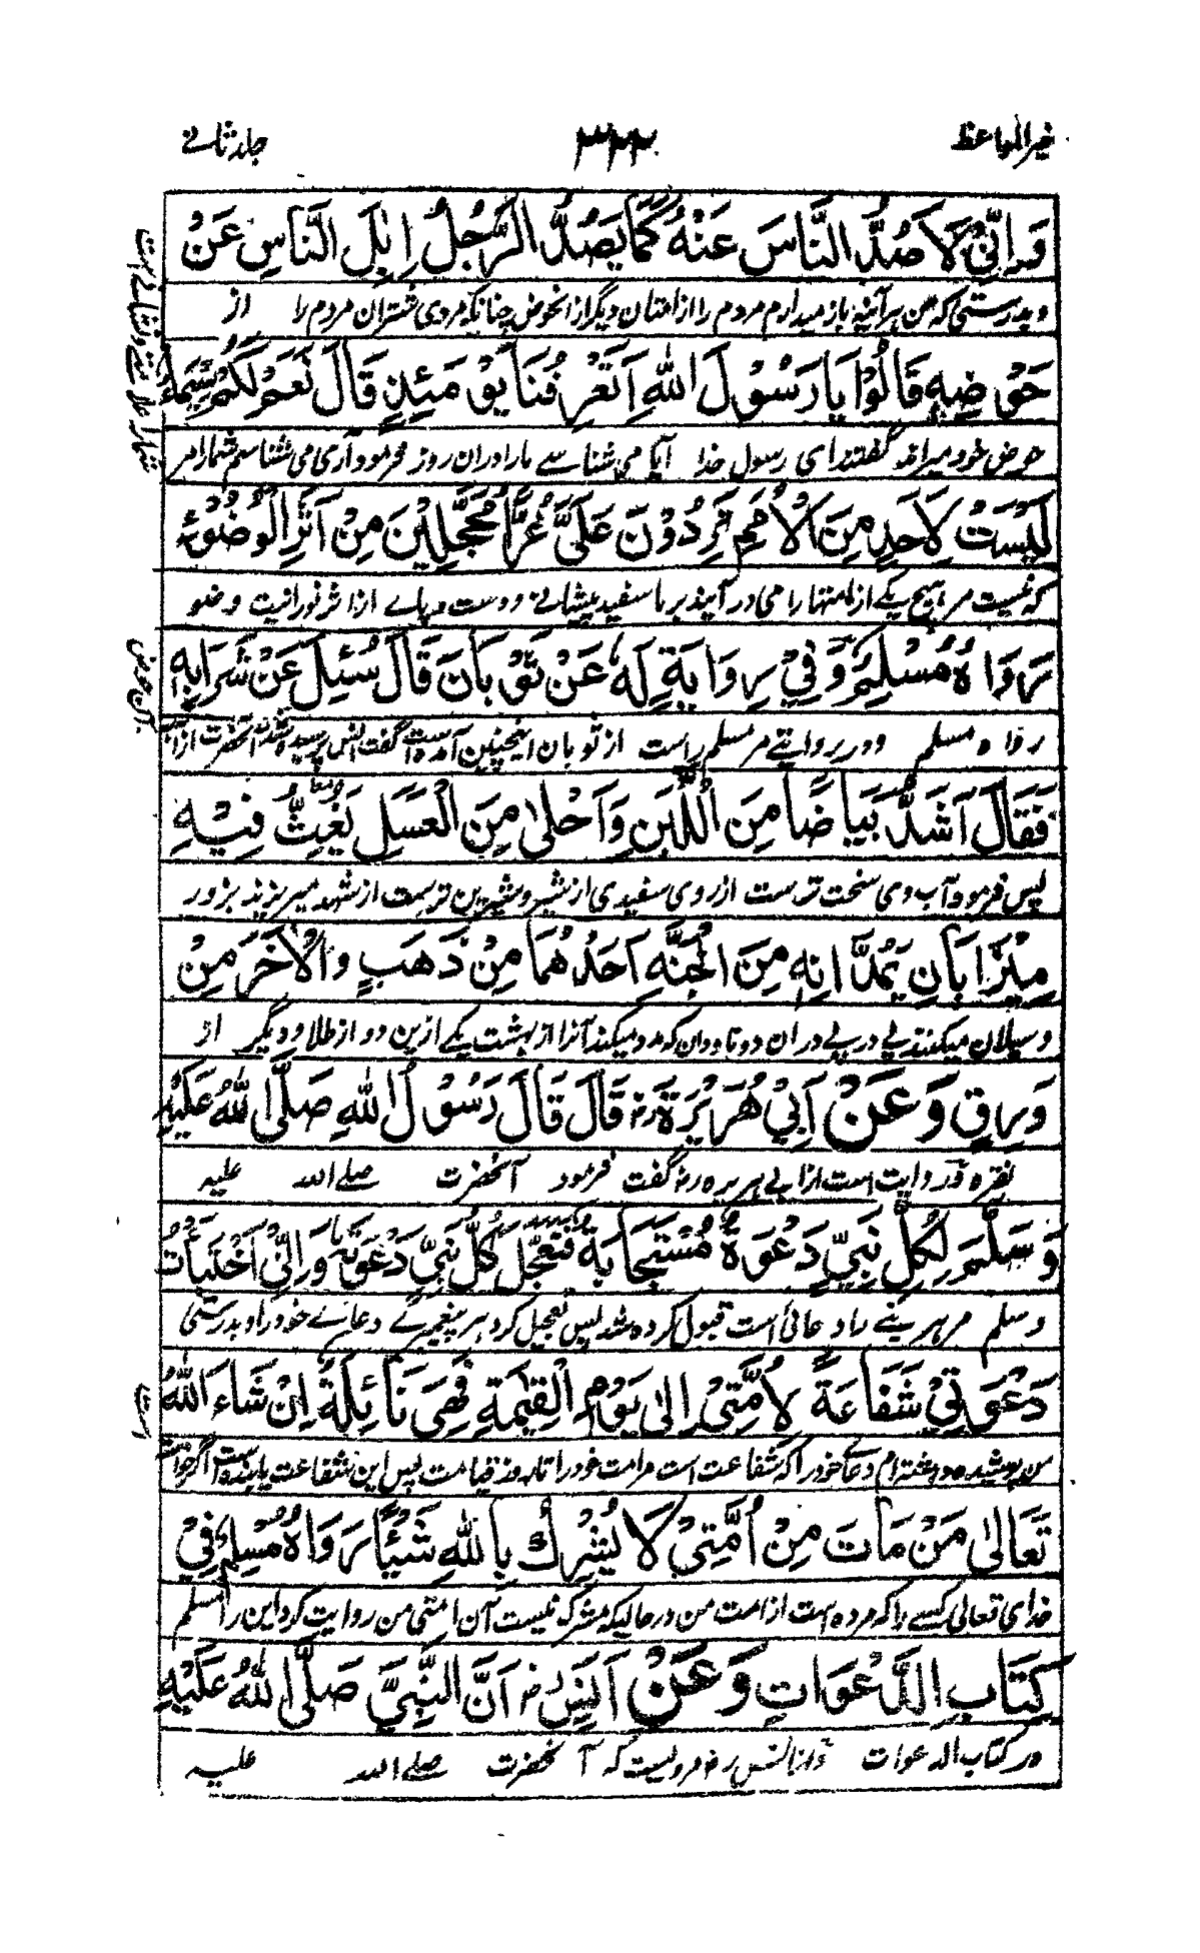 خیر المواعظ ۳۲۲ جلد ثانے
وَاِنِّیْ لَاَصُدُّ النَّاسَ عَنْهُ كَمَا یَصُدُّ الرَّجُلُ اِبِلَ النَّاسِ عَنْ
و بدرستی که من هر آئینه باز میدارم مردم را از امتان دیگر از انحوض چنانکه مردی شتران مردم را از
حَوْضِهٖ قَالُوْا یَا رَسُوْلَ اللّٰهِ اَتَعْرِفُنَا یَوْمَئِذٍ قَالَ نَعَمْ لَكُمْ سِیْمَاءٌ
حوض خود میراند گفتند ای رسول خدا آیا می شناسے ما را دران روز فرمود آری می شناسم شما را مر
لَیْسَتْ لِاَحَدٍ مِنَ الْاُمَمِ تَرِدُوْنَ عَلَیَّ غُرًّا مُحَجَّلِیْنَ مِنْ اَثَرِ الْوُضُوْءِ
که نیست مر هیچ یکے از امتها را می در آیند بر ما سفید پیشانے و دست و پاے از اثر نورانیت وضو
رَوَاهُ مُسْلِمٌ وَّفِیْ رِوَایَةٍ لَهٗ عَنْ ثَوْبَانَ قَالَ سُئِلَ عَنْ شَرَابِهٖ
رواه مسلم و در روایتے مر مسلم راست از ثوبان اینچنین آمده است گفت انس پرسیده شد آنحضرت از آب
فَقَالَ اَشَدُّ بَیَاضًا مِنَ اللَّبَنِ وَاَحْلٰی مِنَ الْعَسَلِ یَغُتُّ فِیْهِ
پس فرمود آب وی سخت ترست از روی سفیدی از شیر و شیرین ترست از شهد میریزند بزور
مِیْزَابَانِ یَمُدَّانِهٖ مِنَ الْجَنَّةِ اَحَدُهُمَا مِنْ ذَهَبٍ وَالْاٰخَرُ مِنْ
و سیلان میکنند پے در پے دران دو ناودان که مدد میکنند آنرا از بهشت یکے ازین دو از طلا و دیگر از
وَرِقٍ وَعَنْ اَبِیْ هُرَیْرَةَ رض قَالَ قَالَ رَسُوْلُ اللّٰهِ صَلَّی اللّٰهُ عَلَیْهِ
نقره و روایت است از ابے هریره رض گفت فرمود آنحضرت صلے الله علیه
وَسَلَّمَ لِكُلِّ نَبِیٍّ دَعْوَةٌ مُسْتَجَابَةٌ فَتَعَجَّلَ كُلُّ نَبِیٍّ دَعْوَتَهٗ وَاِنِّیْ اخْتَبَأْتُ
و سلم مر هر نبے را دعائی است قبول کرده شد پس تعجیل کرد هر پیغمبرے دعائے خود را و بدرستی
دَعْوَتِیْ شَفَاعَةً لِاُمَّتِیْ اِلٰی یَوْمِ الْقِیٰمَةِ فَهِیَ نَائِلَةٌ اِنْ شَاءَ اللّٰهُ
من پوشیده داشته ام دعاے خود را که شفاعت است مر امت خود را تا روز قیامت پس این شفاعت یابنده است اگر خواست
تَعَالٰی مَنْ مَاتَ مِنْ اُمَّتِیْ لَا یُشْرِكُ بِاللّٰهِ شَیْئًا رَوَاهُ مُسْلِمٌ فِیْ
خدای تعالی کسے را که مرده است از امت من در حالیکه مشرک نیست آن امتی من روایت کرد این را مسلم
كِتَابِ الدَّعَوَاتِ وَعَنْ اَنَسٍ رض اَنَّ النَّبِیَّ صَلَّی اللّٰهُ عَلَیْهِ
در کتاب الدعوات و از انس رض مرویست که آنحضرت صلے الله علیه